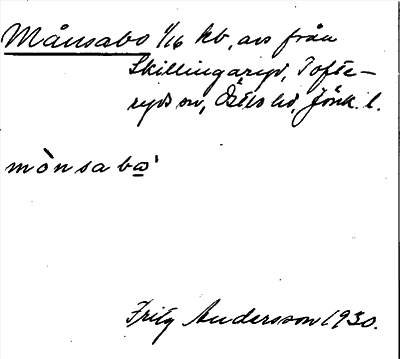 Månsabo 1/16 kb, avs från
Skillingaryd, Tofte-
ryds sn, Östbo hd, Jönk. l.
mònsabω̲'
Fritz Andersson 1930.